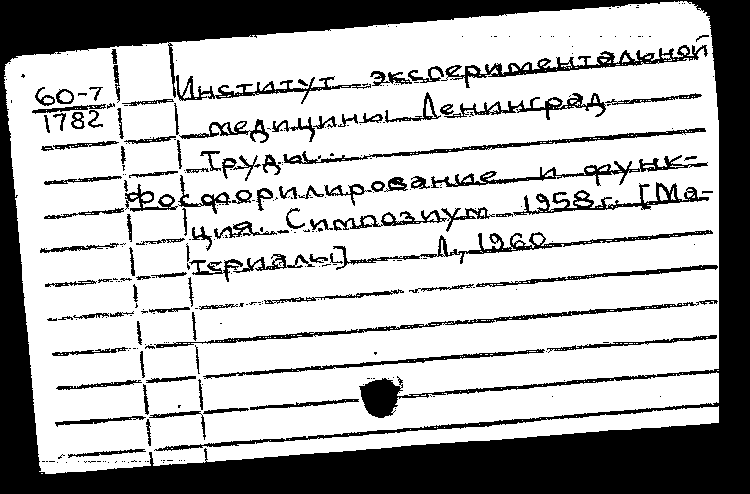 60-7
1782
Институт экспериментальной
медицины Ленинград
Труды...
Фосфорилирование и функ-
ция. Симпозиум 1958г. [Ма-
териалы] Л., 1960